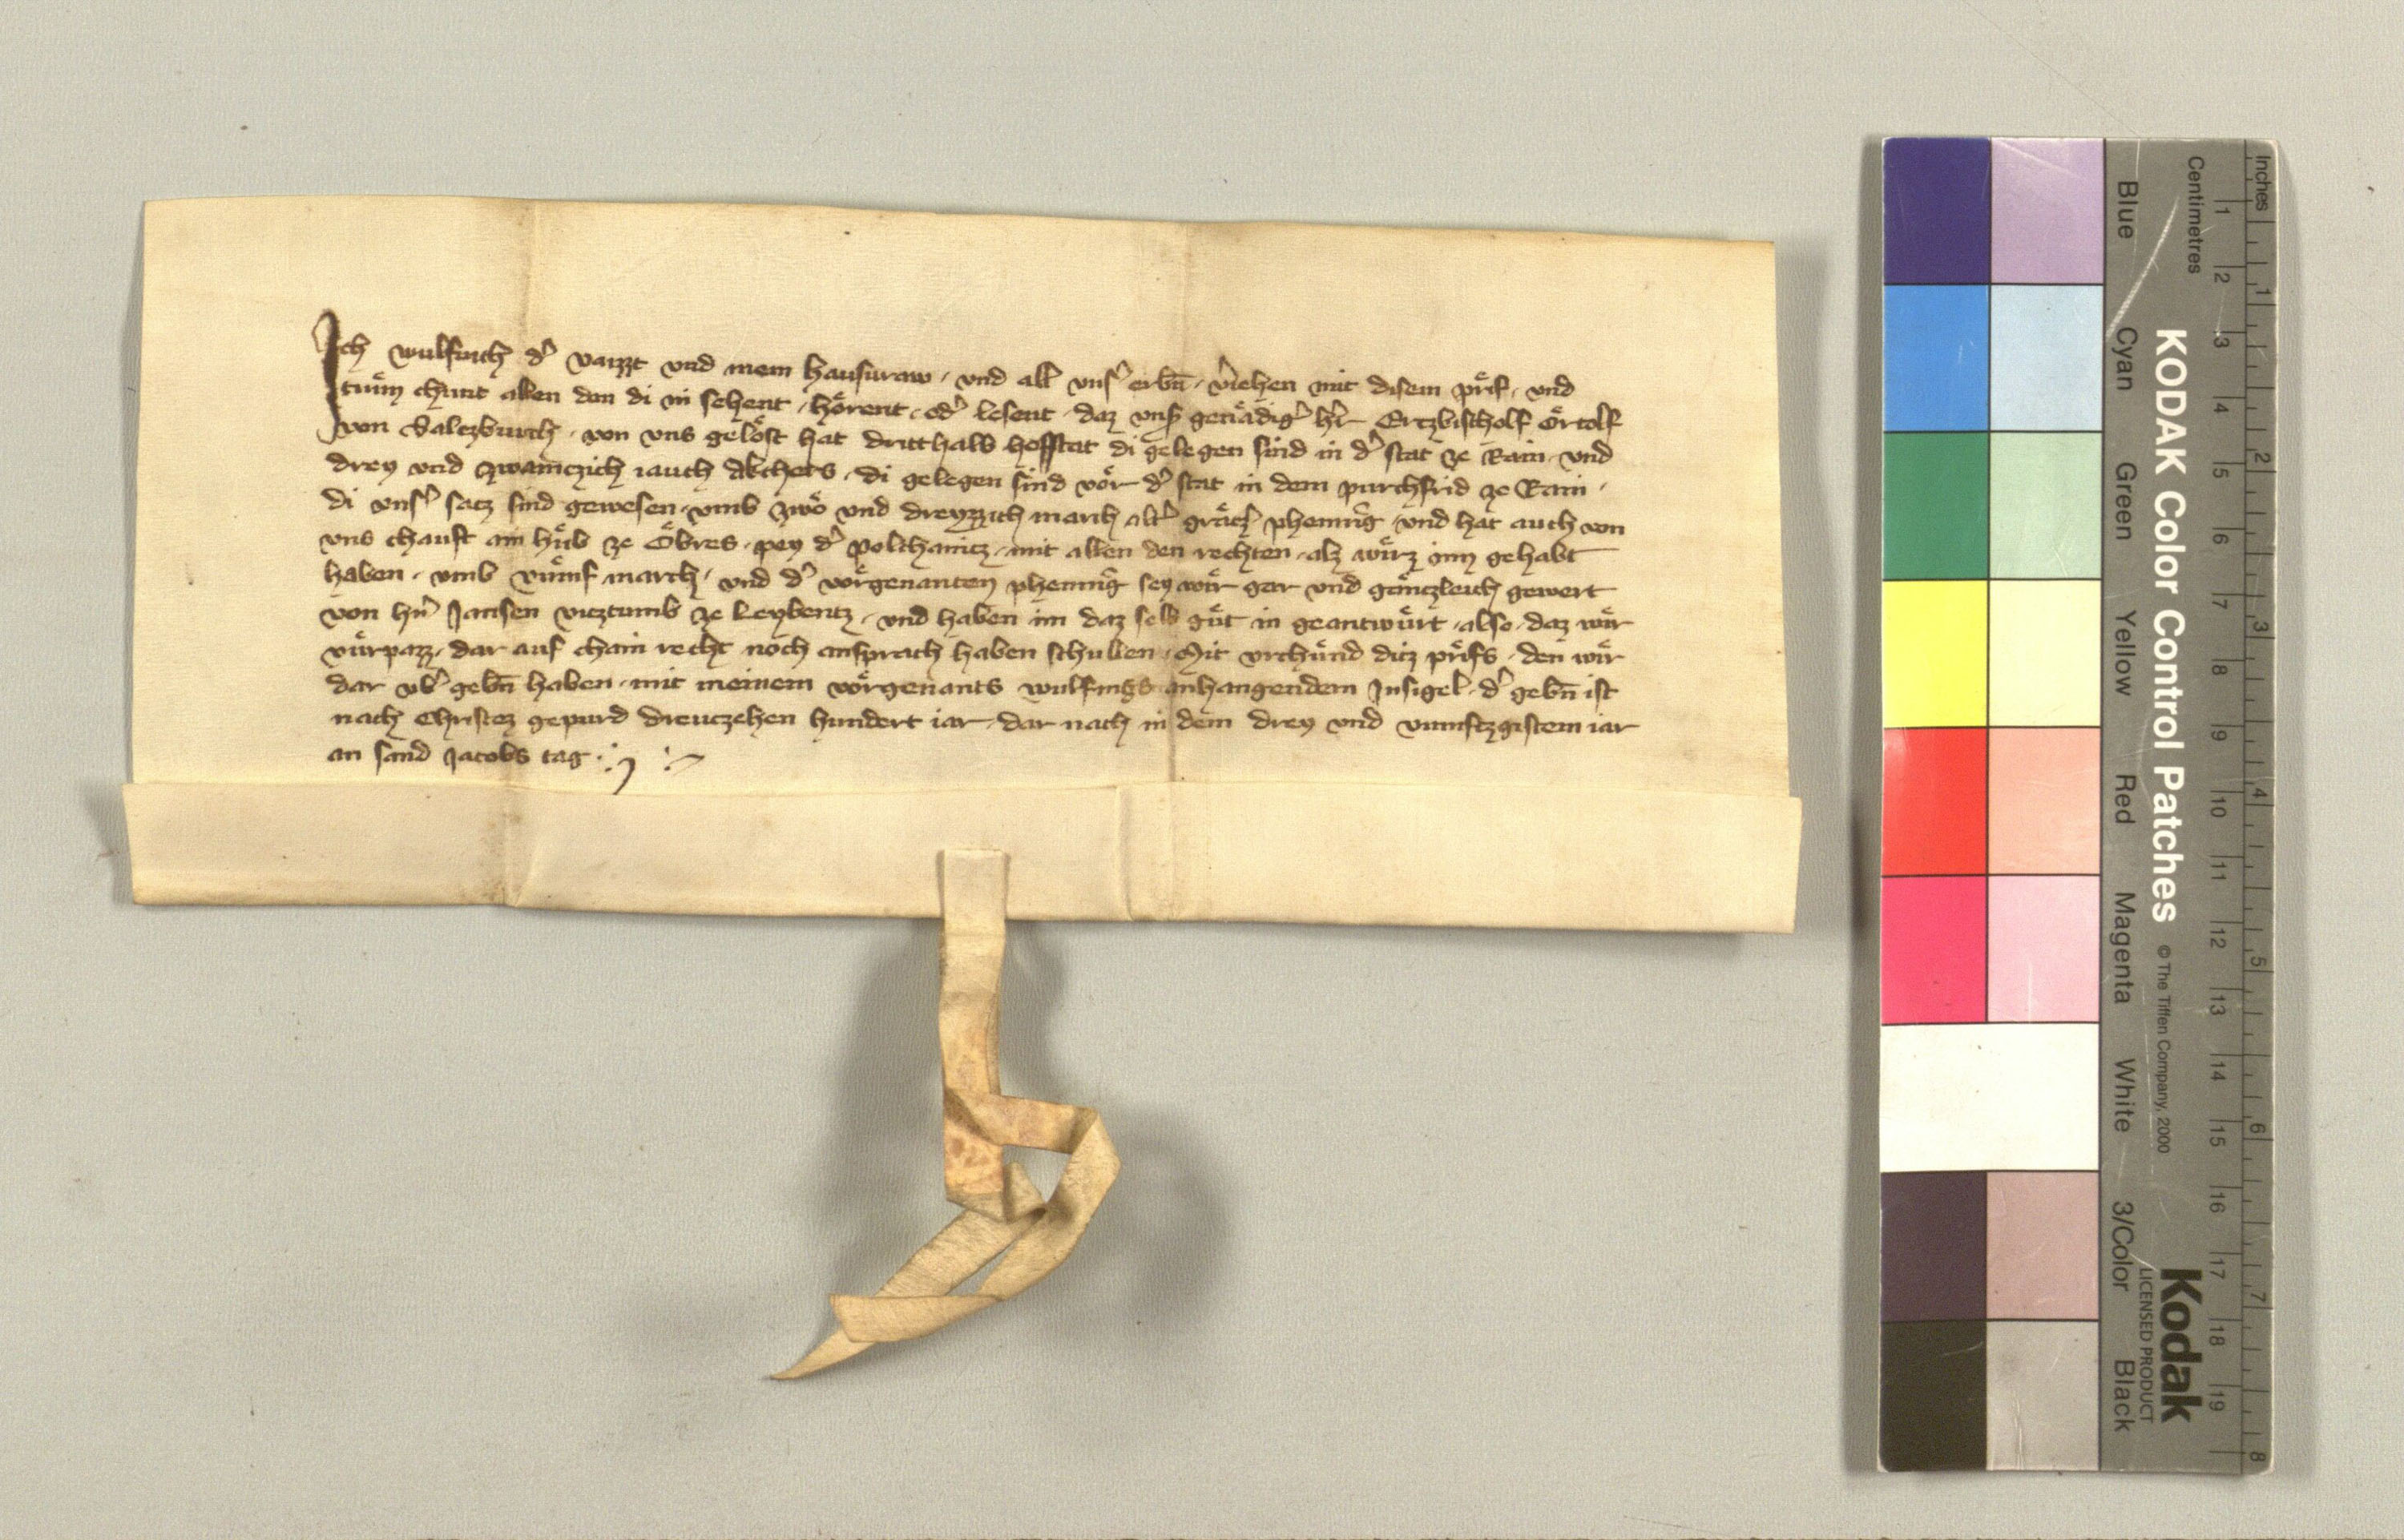 Ich wulfinch d͛ vaizzt vnd mein hausuraw · vnd all vns͛ erbn̄ · v͛iehen mit disem prif · vnd
tuͤm chunt allen den di in sehent · hoͤrent · od͛ lesent · daz vns͛ genaͤdig͛ h͛r Ertzbischolf Oͤrtolf
von Saltzburch · von vns geloͤst hat dritthalb hofstat di gelegen sind in d͛ stat ze Rain · vnd
drey vnd zwainczich iauch Akchers · di gelegen sind voͤr d͛ stat in dem purchfrid ze Rain ·
di vns͛ satz sind gewesen · vmb zwoͤ vnd dreyzzich march alt͛ graͤcz͛ phenni͛g · vnd hat auch von
vns chauft ain huͤb ze Oͤbres · pey d͛ Polchanicz · mit allen den rechten · alz wuͤrz inn gehabt
haben · vmb vuͤmf march · vnd d͛ voͤrgenanten phenni͛g sey wuͤr gar vnd gaͤnczleich gewert
von h͛n Jansen vicztumb ze Leybentz · vnd haben im daz selb guͤt in geantwuͤrt · also · daz wuͤr
vuͤrpazz · dar auf chain recht noch ansprach haben schullen · Mit vrchuͤnd ditz prifs · den wuͤr
dar vb͛ gebn̄ haben · mit meinem voͤrgenants wulfings anhangendem Insigel · d͛ gebn̄ ist
nach Christez gepurd dreuczehen hundert iar · dar nach in dem drey vnd vumftzgistem iar
an sand Jacobs tag ·
KODAK Color Control Patches
© The Tiffen Company, 2000
Kodak
LICENSED PRODUCT
Inches
Centimetres
1 2 3 4 5 6 7 8
1 2 3 4 5 6 7 8 9 10 11 12 13 14 15 16 17 18 19
Blue Cyan Green Yellow Red Magenta White 3/Color Black